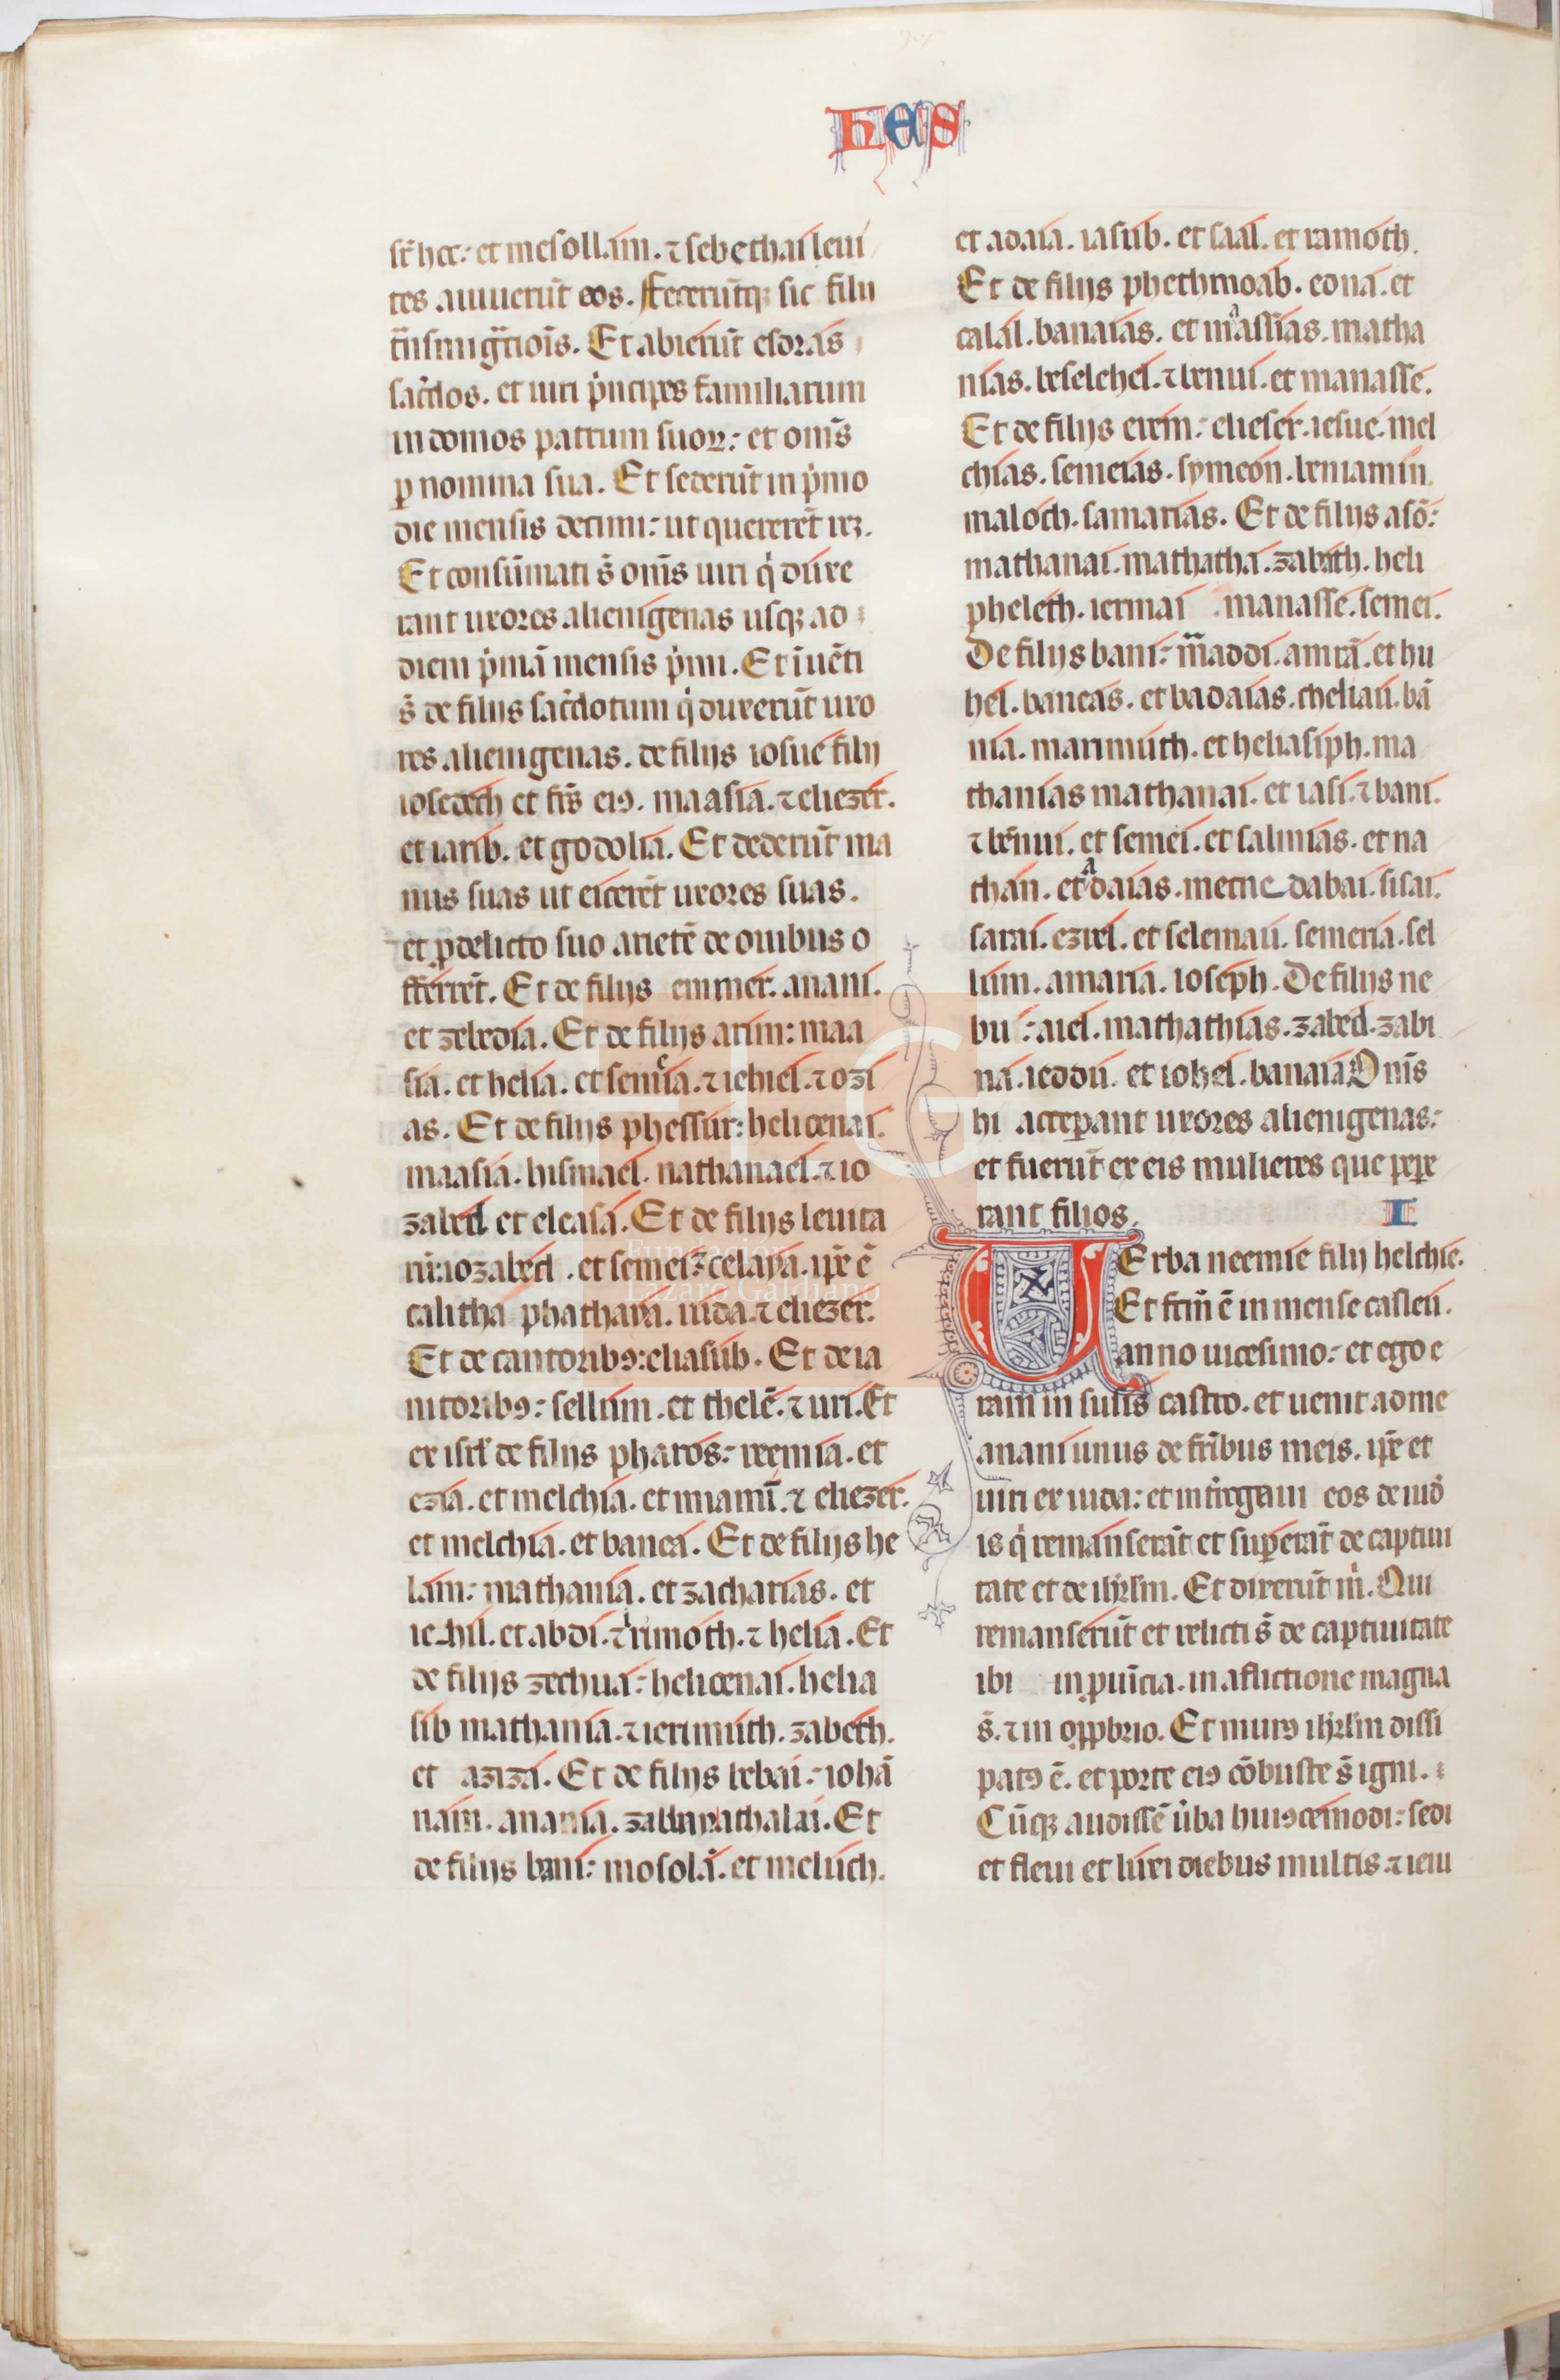 hes
st̄ hec: et mesollam. ⁊ sebethai leui
tes aiuuerūt eos. Feceruntq; sic filii
t̄nsmigͣtiōis. Et abierūt esdras
sac̄dos. et uiri p̍ncipes familiarum
in domos patrum suoꝝ: et om̄s
ꝑ nomina sua. Et sederūt in p̍mo
die mensis decimi: ut quererēt rē.
Et consūmati s̄ om̄s uiri q̍ duxe
rant uxores alienigenas usq; ad
diem p̍mā mensis p̍mi. Et īuēti
s̄ de filiis sac̄dotum q̍ duxerūt uxo
res alienigenas. de filijs iosue filij
iosedech et fr̄s eiꝰ. maasia. ⁊ eliezer.
et iarib. et godolia. Et dederūt ma
nus suas ut eicerēt uxores suas.
et ꝓ delicto suo arietē de ouibus o
fferrēt. Et de filijs emmer. anani.
et zebedia. Et de filijs arim: maa
sia. et helia. et semeia. ⁊ iehiel. ⁊ ozi
as. Et de filijs phessur: helioenai.
maasia. hismael. nathanael. ⁊ io
zabed et eleasa. Et de filijs leuita
ni: iozabed. et semei ⁊ celaya. ip̄e ē
calitha phathaya. iuda. ⁊ eliezer.
Et de cantoribꝰ: eliasub. Et de ia
nitoribꝰ: sellum. et thelē. ⁊ uri. Et
ex isrl̄ de filijs pharos: remia. et
ezia. et melchia. et miamī. ⁊ eliezer.
et melchia. et banea. Et de filijs he
lam: mathania. et zacharias. et
iehil. et abdi. ⁊ rimoth. ⁊ helia. Et
de filijs zechua: helioenai. helia
sib mathania. ⁊ ierimuth. zabeth.
et aziza. Et de filijs bebai: iohā
nam. anania. zabbai athalai. Et
de filijs bani: mosolā. et meluch.
et adaia. iasub. et saal. et ramoth.
Et de filijs phethmoab. edna. et
calal. banaias. et maassias. matha
nias. beselehel. ⁊ benui. et manasse.
Et de filijs erem: elieser. iesue. mel
chias. semeias. symeon. beniamin.
maloch. samarias. Et de filijs asō:
mathanai. mathatha. zabath. heli
pheleth. iermai manasse. semei.
De filijs bani: maaddi. amrā. et hu
hel. baneas. et badaias. cheliau. bā
nia. marimuth. et heliasiph. ma
thanias mathanai. et iasi. ⁊ bani.
⁊ bēnui. et semei. et salmias. et na
than. et adaias. mecne dabai. sisai.
sarai. ezrel. et selemau. semeria. sel
lum. amaria. ioseph. De filijs ne
bu: aiel. mathathias. zabed. zabi
na. ieddu. et iohel. banaia. Om̄s
hi acceꝑant uxores alienigenas:
et fuerūt ex eis mulieres que peꝑe
rant filios. I
Uerba neemie filij helchie.
Et fc̄m ē in mense casleu.
anno uicesimo: et ego e
ram in susis castro. et uenit ad me
anani unus de fr̄ibus meis. ip̄e et
uiri ex iuda: et int̄rogaui eos de iud̄
is q̍ remanserāt et suꝑerāt de captiui
tate et de ihrl̄m. Et dixerūt m̍. Qui
remanserūt et relicti s̄ de captiuitate
ibi in ꝓuīcia. in aflictione magna
s̄. ⁊ in oꝓbrio. Et murꝰ ihrl̄m dissi
patꝰ ē. et porte eiꝰ cōbuste s̄ igni.
Cūq; audissē u̍ba huiꝰcemodi: sedi
et fleui et luxi diebus multis. ⁊ ieiu